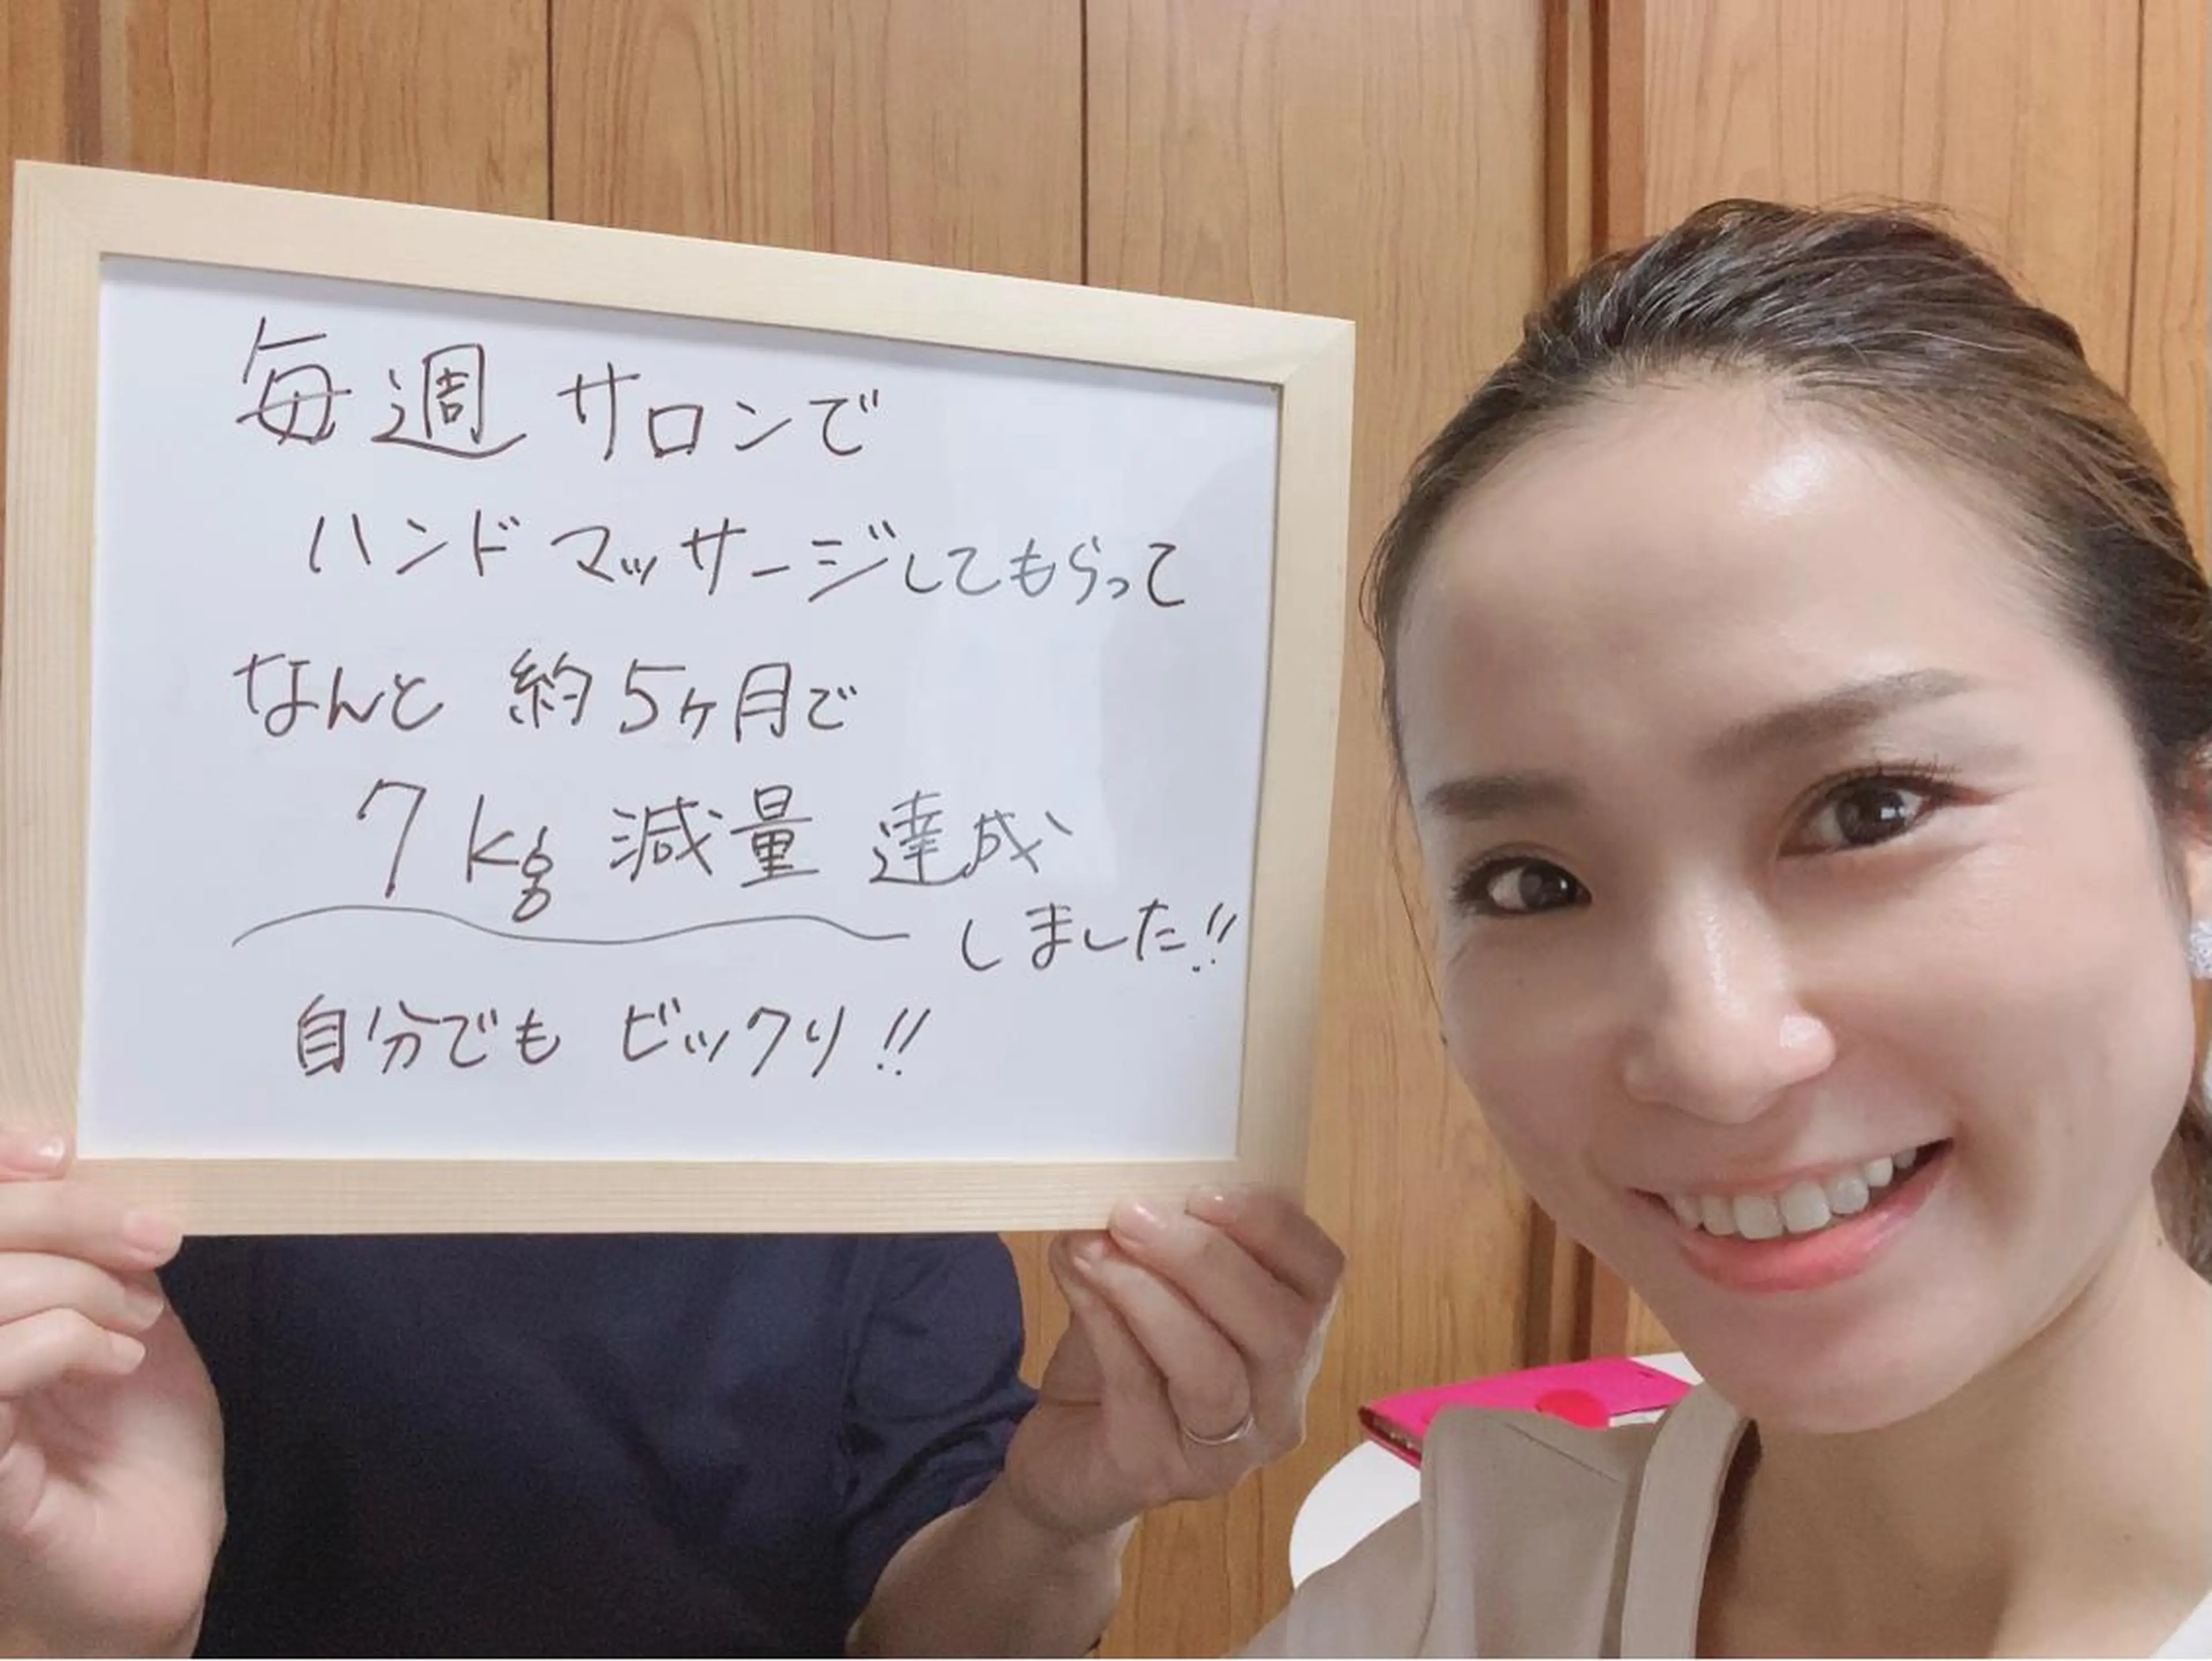 毎週サロンで
ハンドマッサージしてもらって
なんと 約5ヶ月で
7kg 減量 達成
しました!!
自分でも ビックリ!!